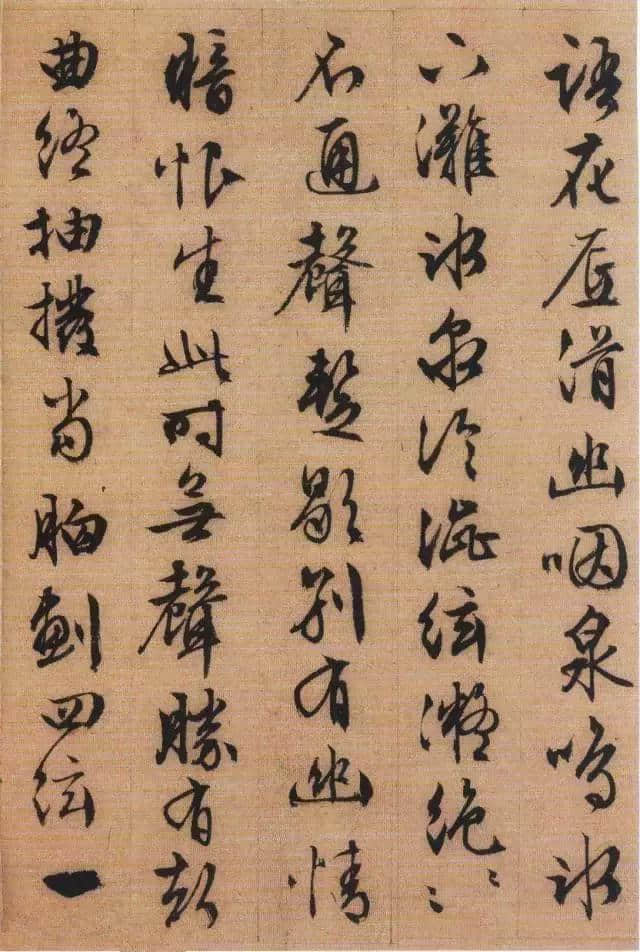 語花底滑幽咽泉鳴氷
下灘氷泉冷澁絃凝絶〻〻
不通聲暫歇别有幽情
暗恨生此時無聲勝有聲
曲終抽撥當胸劃四絃一